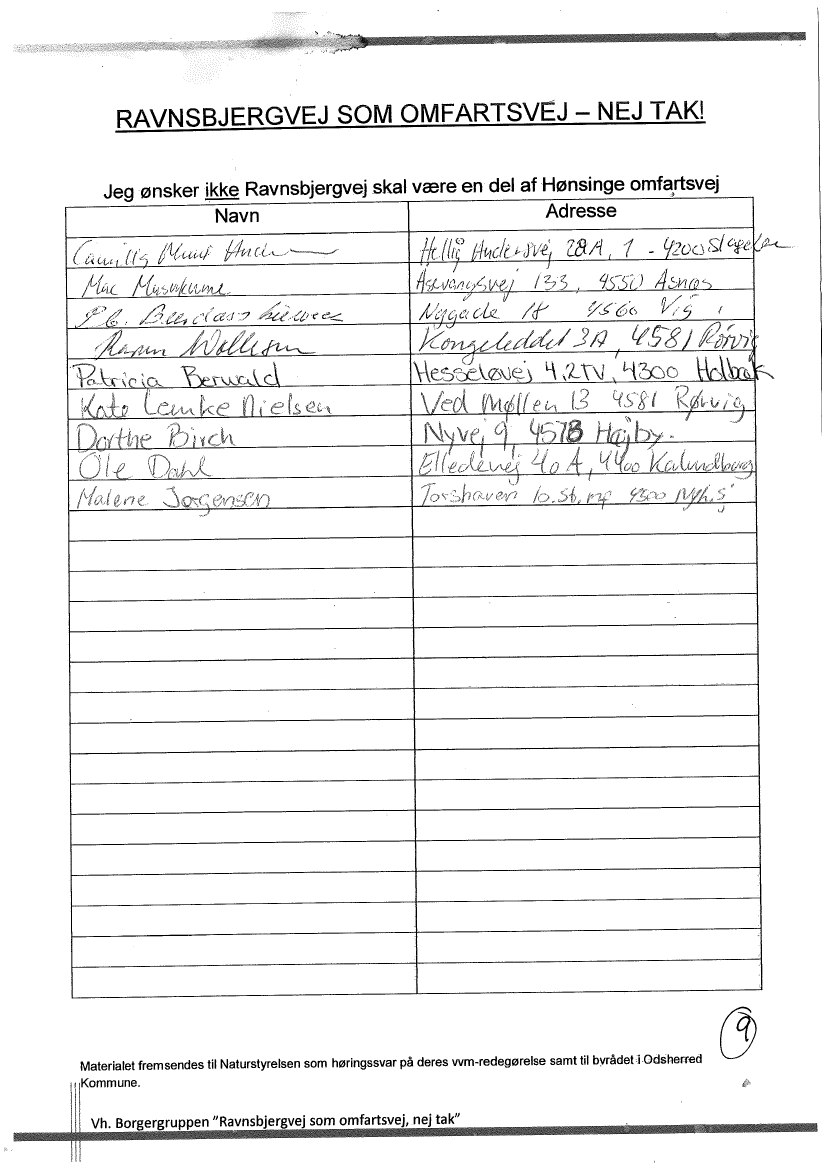 RAVNSBJERGVEJ SOM OMFARTSVEJ – NEJ TAK!
Jeg ønsker ikke Ravnsbjergvej skal være en del af Hønsinge omfartsvej
Navn Adresse
Camilla 28A, 1 - 4200 Slagelse
Asevangsvej 133, 4550 Asnæs
Nygade 18 4560 Vig
Kongeleddet 3A, 4581 Rørvig
Patricia Berwald Hesseløvej 4, 2TV, 4300 Holbæk
Kate Lemke Nielsen Ved Møllen 13 4581 Rørvig
Dorthe Birch Nyvej 9, 4573 Højby.
Ole Dahl Elledevej 40 A, 4400 Kalundborg
Malene Jørgensen Torshaven 10. St. 4500 Nyk. S
9
Materialet fremsendes til Naturstyrelsen som høringssvar på deres vvm-redegørelse samt til byrådet i Odsherred
Kommune.
Vh. Borgergruppen "Ravnsbjergvej som omfartsvej, nej tak"